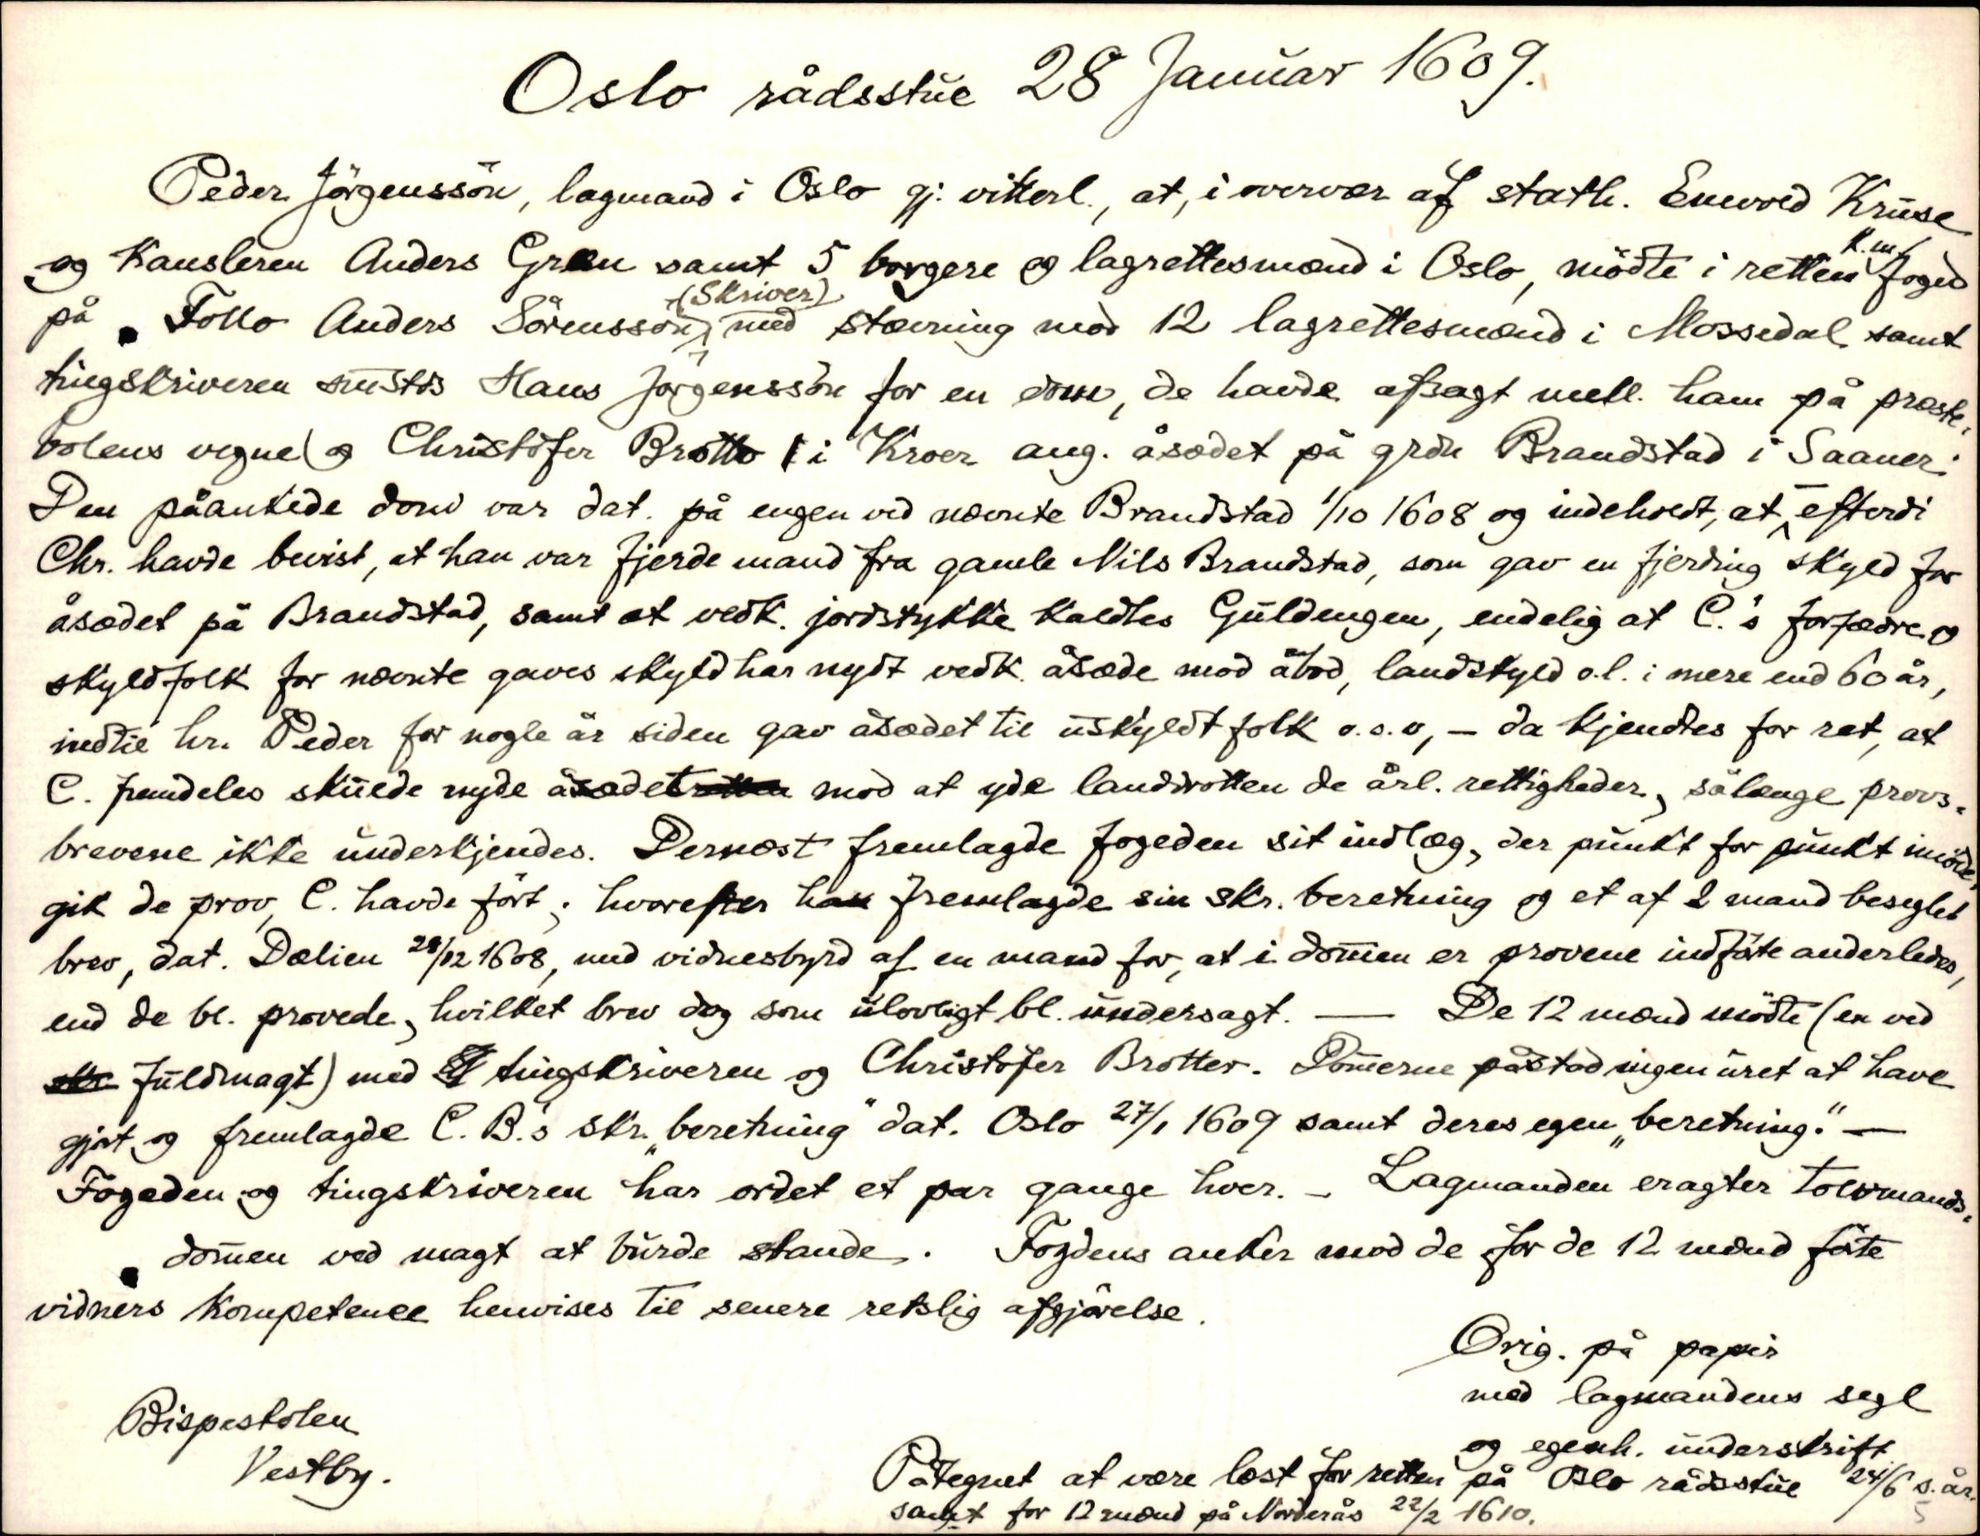 Oslo rådsstue 28 Januar 1609.
Peder Jörgenssön, lagmand i Oslo gj. vitterl., at, i overvær af stath. Enwold Kruse
og Kansleren Anders Green samt 5 borgere og lagrettesmænd i Oslo, mödte i retten K.m. foged
på Follo Anders Sörenssön (Skriver) med stævning mod 12 lagrettesmænd i Mossedal samt
tingskriveren sammesteds Hans Jörgenssön for en dom, de havde afsagt mell. ham på præste-
bolens vegne og Christoffer Brotto i Kroer ang. åsædet på grdn Brandstad i Saaner.
Den påankede dom var dat. på engen ved nævnte Brandstad 1/10 1608 og indeholdt, at, efterdi
Chr. havde bevist, at han var fjerde mand fra gamle Nils Brandstad, som gav en fjerding skyld for
åsædet på Brandstad, samt at vedk. jordstykke kaldtes Guldengen, endelig at C.'s forfædre og
skyldfolk for nævnte gaves skyld har nydt vedk. åsæde mod åbod, landskyld o.l. i mere end 60 år,
indtil hr. Peder for nogle år siden gav åsædet til uskyldt folk o.s.v, – da kjendtes for ret, at
C. fremdeles skulde nyde åsædet mod at yde landdrotten de årl. rettigheder, sålænge provs-
brevene ikke underkjendes. Dernæst fremlagde fogeden sit indlæg, der punkt for punkt imöde-
gik de prov, C. havde fört; hvorefter han fremlagde sin skr. beretning og et af 2 mand beseglet
brev, dat. Dælien 28/12 1608, med vidnesbyrd af en mand for, at i dom̄en er provene indförte anderledes,
end de bl. provede, hvilket brev dog som ulovligt bl. undersagt. — De 12 mænd mödte (en ved
fuldmagt) med tingskriveren og Christoffer Brotter. Dom̄erne påstod ingen uret at have
gjort og fremlagde C. B.'s skr. „beretning" dat. Oslo 27/1 1609 samt deres egen „beretning." —
Fogeden og tingskriveren har ordet et par gange hver. – Lagmanden eragter tolvmands-
dom̄en ved magt at burde stande. Fogdens anker mod de for de 12 mænd förte
vidners Kompetence henvises til senere retslig afgjörelse.
Orig. på papir
med lagmandens segl
og egenh. underskrift
Bispestolen
Vestby.
Påtegnet at være læst for retten på Oslo rådsstue 24/6 s. år.
samt for 12 mænd på Norderås 22/2 1610.
5